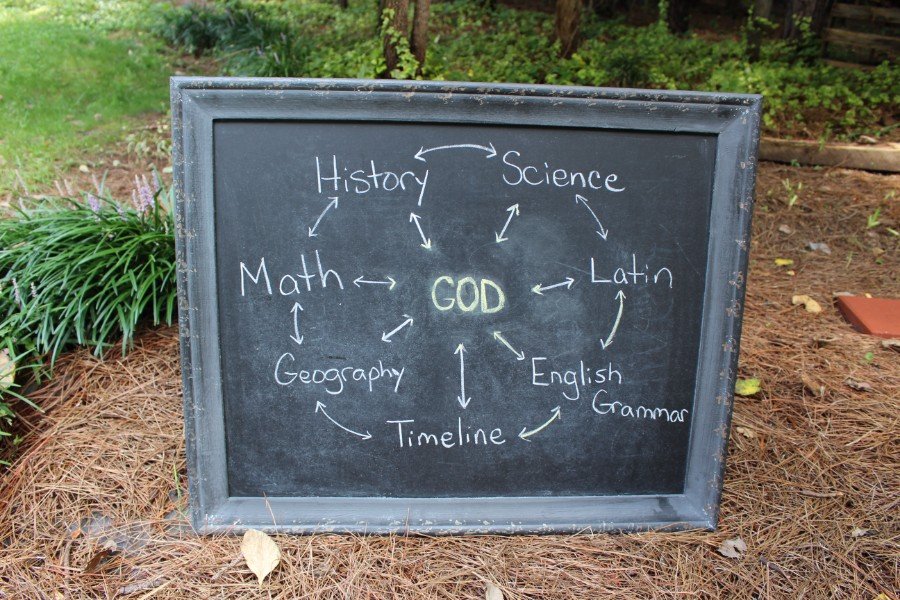 History
Science
Math
GOD
Latin
Geography
English
Grammar
Timeline